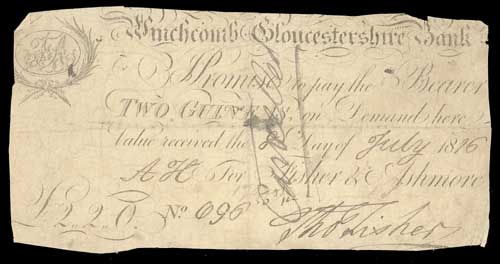 Winchcomb Gloucestershire Bank
I Promise to pay the Bearer
TWO GUINEAS, on Demand here
Value received the Day of July 1816
A H For Fisher & Ashmore
£2,,2,,0. No. 096
Thos Fisher